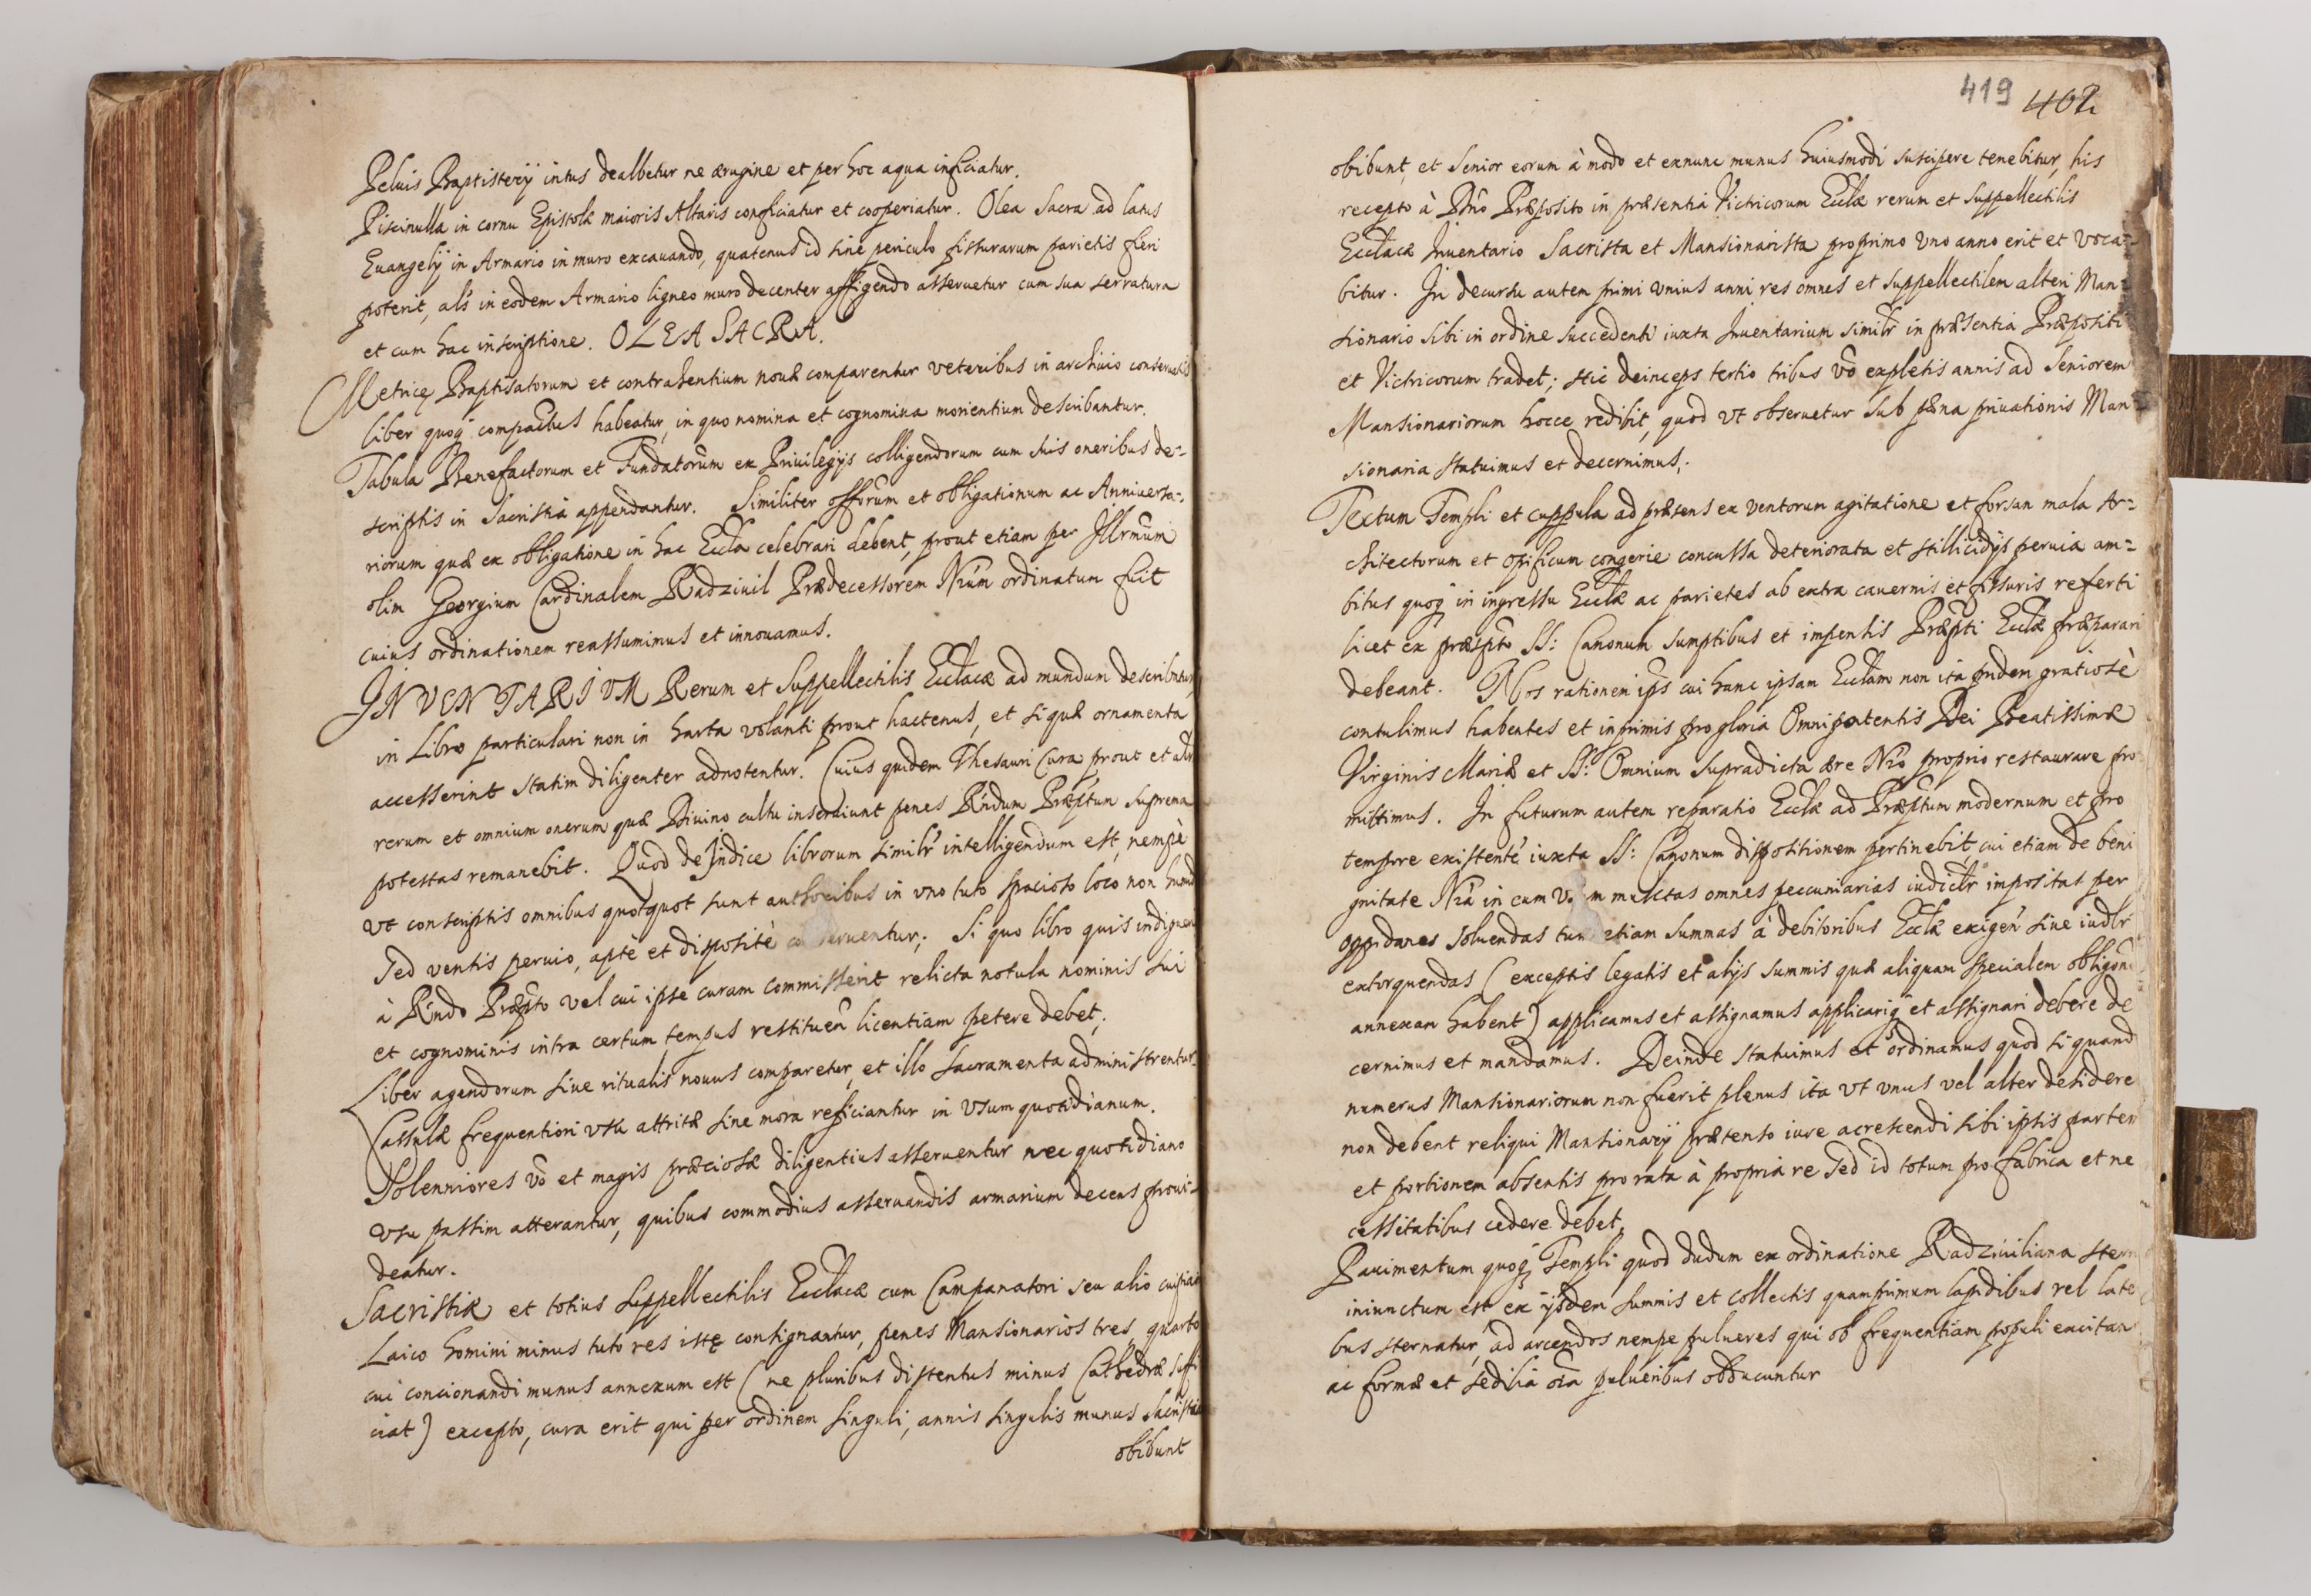 Peluis Baptisterÿ intus dealbetur ne ærugine et per hoc aqua inficiatur.
Piscinulla in cornu Epistolæ maioris Altaris conficiatur et cooperiatur. Olea Sacra ad latus
Euangelÿ in Armario in muro excauando, quatenus id sine periculo fissurarum parietis fieri
poterit, als in eodem Armario ligneo muro decenter affigendo asseruetur cum sua serratura
et cum hac inscriptione. OLEA SACRA.
Metricę Baptisatorum et contrahentium nouæ comparentur veteribus in archiuio conseruatis
liber quoq compactus habeatur, in quo nomina et cognomina morientium describantur.
Tabula Benefactorum et Fundatorum ex Priuilegÿs colligendorum cum suis oneribus de-
scriptis in Sacristia appendantur. Similiter offorum et obligationum ac Anniuersa-
riorum quæ ex obligatione in hac Eccla celebrari debent, prout etiam per Illrmum
olim Georgium Cardinalem Radziuil Prædecessorem Nrum ordinatum fuit
cuius ordinationem reassumimus et innouamus.
INVENTARIVM Rerum et Suppellectilis Ecclacæ ad mundum describatur
in Libro particulari non in harta volanti prout hactenus, et si quæ ornamenta
accesserint statim diligenter adnotentur. Cuius quidem Thesauri Cura prout et
rerum et omnium onerum quæ Diuino cultu inseruiunt penes Rndum Præptum suprema
potestas remanebit. Quod de Indice librorum similr intelligendum est, nempè
vt conscriptis omnibus quotquot sunt authoribus in vno tuto spacioso loco non
sed ventis peruio, aptè et dispositè conseruentur; Si quo libro quis
à Rndo Præpto vel cui ipse curam commisserit relicta notula nominis sui
et cognominis intra certum tempus restituen licentiam petere debet;
Liber agendorum siue ritualis nouus comparetur, et illo sacramenta administrentur.
Cassulæ frequentiori vsu attritæ sine mora reficiantur in vsum quotidianum.
Solenniores vo et magis præciosæ diligentius asseruentur nec quotidiano
vsu passim atterantur, quibus commodius asseruandis armarium decens proui-
deatur.
Sacristiæ et totius suppellectilis Ecclacæ cum Campanatori seu alio cuipiam
Laico homini minus tuto res istę consignantur, penes Mansionarios tres, quarto
cui concionandi munus annexum est (ne pluribus distentus minus Cathedræ suffi
ciat) excepto, cura erit qui per ordinem singuli, annis singulis munus Sacristæ
obibunt
419 402
obibunt, et senior eorum à modo et exnunc munus huiusmodi suscipere tenebitur, his
recepto à Dno Præposito in præsentia Victricorum Ecclæ rerum et suppellectilis
Ecclacæ Inuentario Sacrista et Mansionarista proprimo vno anno erit et voca-
bitur. In decursu autem primi vnius anni res omnes et suppellectilem alteri Man-
sionario sibi in ordine succedenti iuxta Inuentarium similr in præsentia Præpositi
et Victricorum tradet; sic deinceps tertio tribus vo expletis annis ad Seniorem
Mansionariorum hocce redibit, quod vt obseruetur sub pæna priuationis Man-
sionaria statuimus et decernimus.
Tectum Templi et cuppula ad præsens ex ventorum agitatione et forsan mala Ar-
chitectorum et opificum congerie concussa deteriorata et stillicidÿs peruia am-
bitus quoq in ingressu Ecclæ ac parietes ab extra cauernis et fissuris referti
licet ex præspto SS: Canonum sumptibus et impensis Præpti Ecclæ præparari
debeant. Nos rationem ips cui hanc ipsam Ecclam non ita pridem gratiosè
contulimus habentes et inprimis pro gloria Omnipotentis Dei Beatissimæ
Virginis Mariæ et SS: Omnium supradicta ære Nro proprio restaurare pro
mittimus. In futurum autem reparatio Ecclæ ad Præptum modernum et pro
tempore existente iuxta SS: Canonum dispositionem pertinebit, cui etiam de beni
gnitate Nra in eum mulctas omnes peccuniarias iudictr impositas per
oppidanos soluendas tum etiam summas à debitoribus Ecclæ exigen siue iudlr
extorquendas (exceptis legatis et alÿs summis quæ aliquam specialem obligonem
annexam habent) applicamus et assignamus applicariq et assignari debere de
cernimus et mandamus. Deinde statuimus et ordinamus quod si quand
numerus Mansionariorum non fuerit plenus ita vt vnus vel alter desidere
non debent reliqui Mansionarÿ prætenso iure acrescendi sibi ipsis partem
et portionem absentis pro rata à propria re sed id totum pro fabrica et ne
cessitatibus cedere debet.
Pauimentum quoq Templi quod dudum ex ordinatione Radziuiliana stern
iniunctum est ex ÿsdem summis et collectis quamprimum lapidibus vel late
bus sternatur, ad arcendos nempe pulueres qui ob frequentiam populi excitan
ac formæ et sedilia oia pulueribus obducuntur